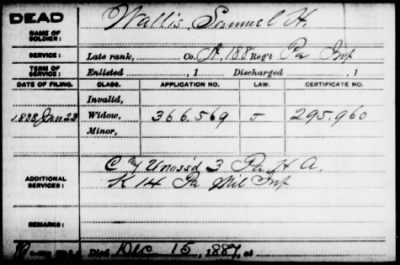 DEAD
NAME OF SOLDIER: Wallis, Samuel H.
SERVICE: Late rank, Co. H, 188 Reg't Pa Inf
TERM OF SERVICE: Enlisted , 1 Discharged , 1
DATE OF FILING. CLASS. APPLICATION NO. LAW. CERTIFICATE NO.
Invalid,
1888 Jan 23 Widow, 366.569 295.960
Minor,
ADDITIONAL SERVICES: C & Unass'd 3 Pa H A.
K 14 Pa Mil Inf
REMARKS:
Died Dec 15, 1887, at